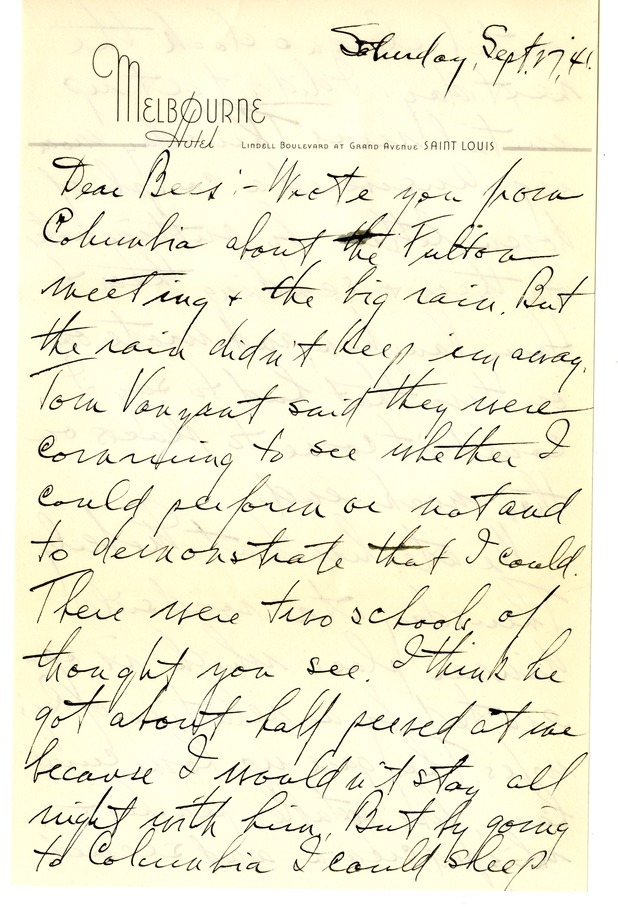 Saturday, Sept. 27, 41.
MELBOURNE
Hotel LINDELL BOULEVARD AT GRAND AVENUE SAINT LOUIS
Dear Bess:- Wrote you from
Columbia about the Fulton
meeting + the big rain. But
the rain didn't keep em away.
Tom Vanzant said they were
comming to see whether I
could perform or not and
to demonstrate that I could.
There were two schools of
thought you see. I think he
got about half peeved at me
because I wouldn't stay all
night with him. But by going
to Columbia I could sleep